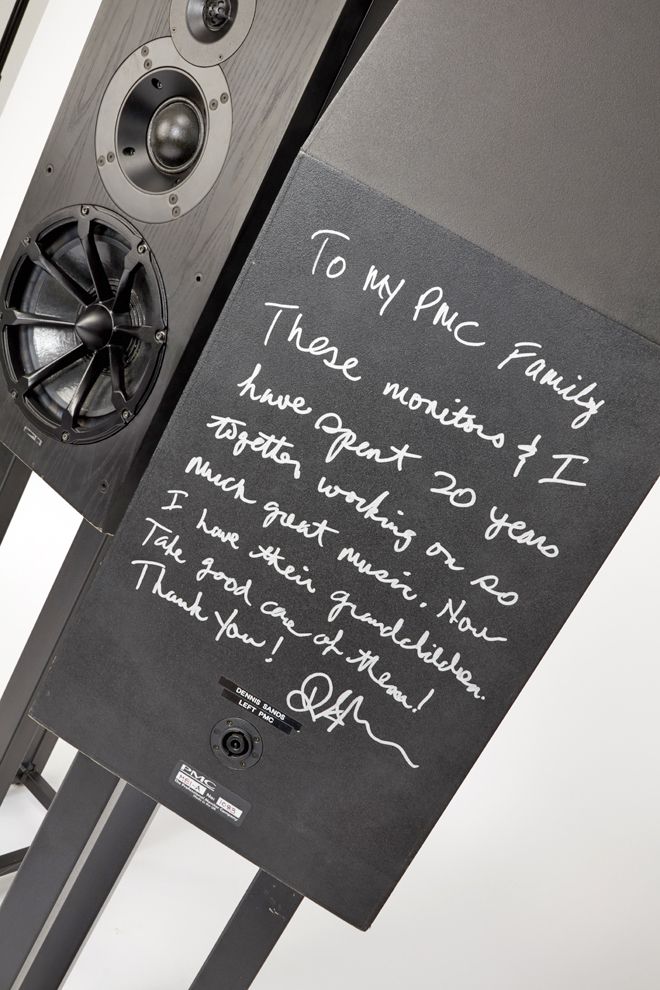 To MY PMC Family
These monitors & I
have spent 20 years
together working on so
much great music. Now
I have their grandchildren.
Take good care of them!
Thank You!
DENNIS SANDS
LEFT PMC
PMC